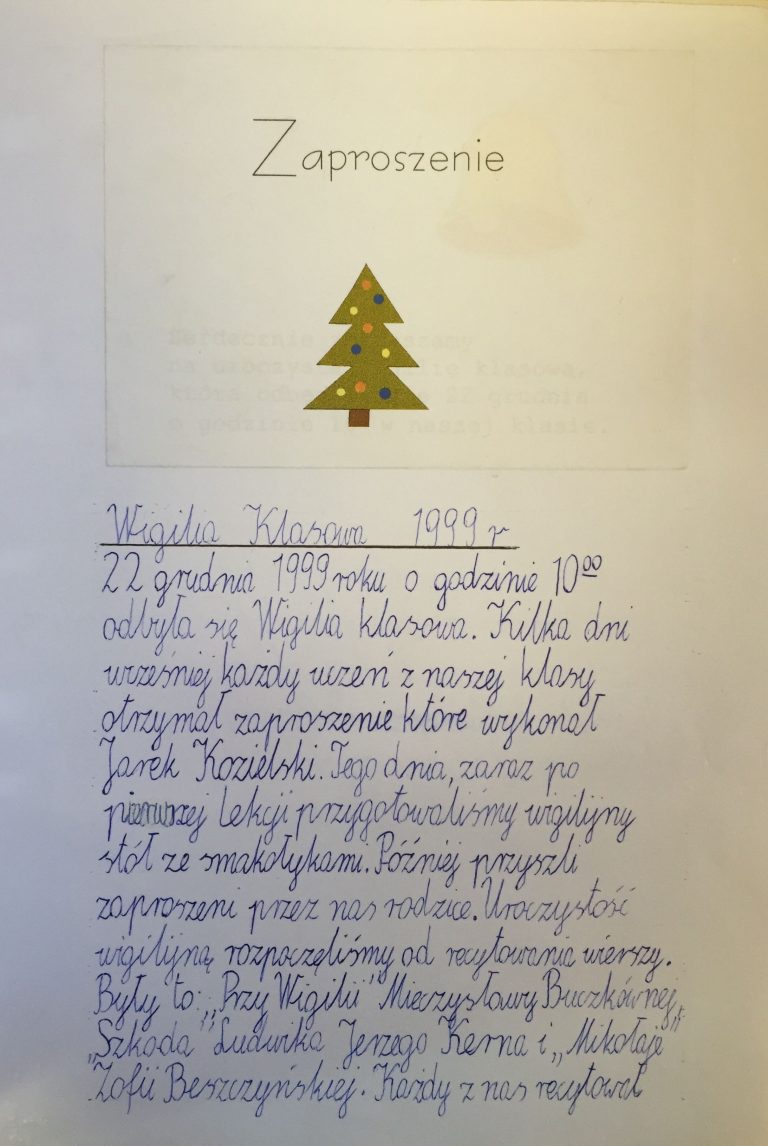 Zaproszenie
Serdecznie
na uroczys klasową,
która odbę 22 grudnia
o godzinie 10 w naszej klasie.
Wigilia Klasowa 1999 r
22 grudnia 1999 roku o godzinie 10⁰⁰
odbyła się Wigilia klasowa. Kilka dni
wcześniej każdy uczeń z naszej klasy
otrzymał zaproszenie które wykonał
Jarek Kozielski. Tego dnia, zaraz po
pierwszej lekcji przygotowaliśmy wigilijny
stół ze smakołykami. Później przyszli
zaproszeni przez nas rodzice. Uroczystość
wigilijną rozpoczęliśmy od recytowania wierszy.
Były to: „Przy Wigilii" Mieczysławy Buczkównej,
„Szkoda" Ludwika Jerzego Kerna i „Mikołaje"
Zofii Beszczyńskiej. Każdy z nas recytował